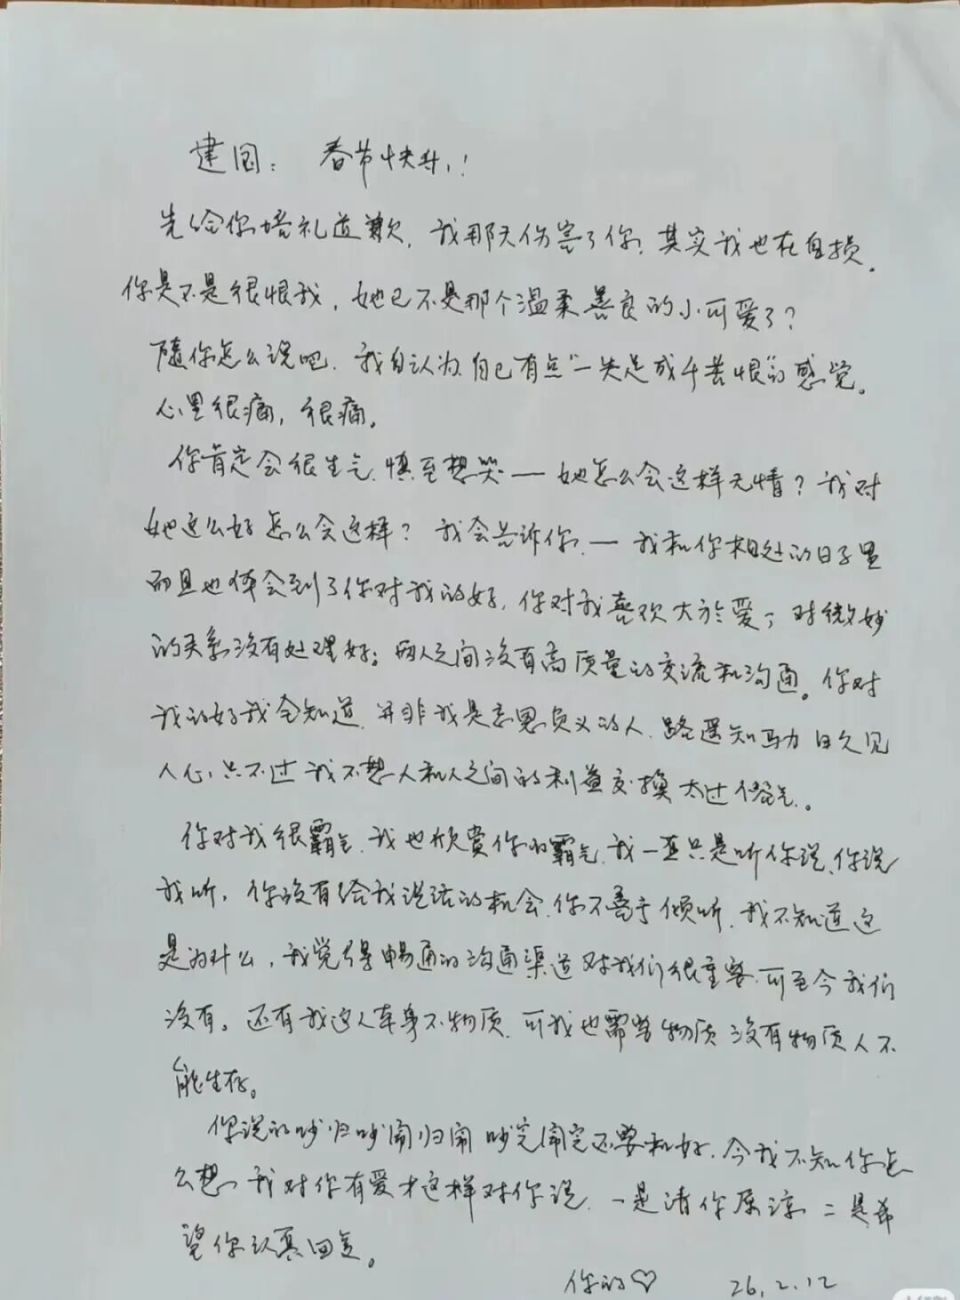 建国：春节快乐！
先给你培礼道歉，我那天伤害了你，其实我也在自损。
你是不是很恨我，她已不是那个温柔善良的小可爱了？
随你怎么说吧，我自认为自己有点“一失足成千苦恨”的感觉。
心里很痛，很痛。
你肯定会很生气，慎至想哭——她怎么会这样无情？我对
她这么好怎么会这样？我会告诉你，—我和你相处的日子里
而且也体会到了你对我的好，你对我喜欢大於爱；对微妙
的关系没有处理好；两人之间没有高质量的交流和沟通。你对
我的好我全知道，并非我是忘恩负义的人，路遥知马力日久见
人心，只不过我不想人和人之间的利益交换太过俗气。
你对我很霸气，我也欣赏你的霸气，我一直只是听你说，你说
我听，你没有给我说话的机会，你不善于倾听，我不知道这
是为什么，我觉得畅通的沟通渠道对我们很重要，可至今我们
没有。还有我这人本身不物质，可我也需要物质，没有物质人不
能生存。
你说的吵归吵闹归闹吵完闹完还要和好，今我不知你怎
么想，我对你有爱才这样对你说，一是请你原谅，二是希
望你认真回复。
你的♡ 26.2.12